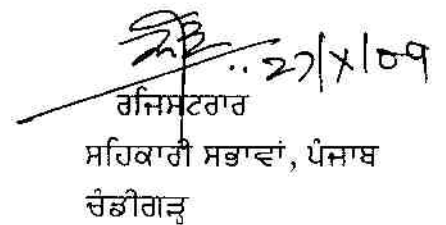 27/X/09
ਰਜਿਸਟਰਾਰ
ਸਹਿਕਾਰੀ ਸਭਾਵਾਂ, ਪੰਜਾਬ
ਚੰਡੀਗੜ੍ਹ